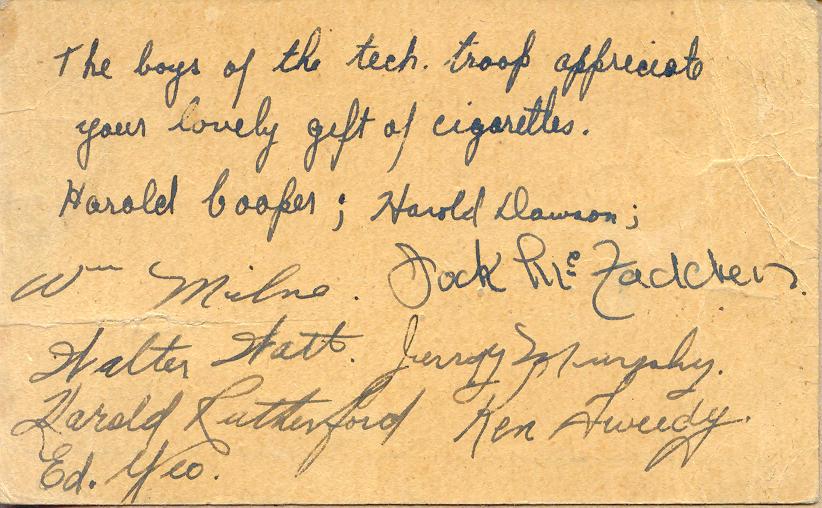 The boys of the tech. troop appreciate
your lovely gift of cigarettes.
Harold Cooper; Harold Dawson;
Wm Milne. Jock McFadden.
Walter Watt. Jerry Murphy.
Harold Rutherford Ken Tweedy.
Ed. Yeo.